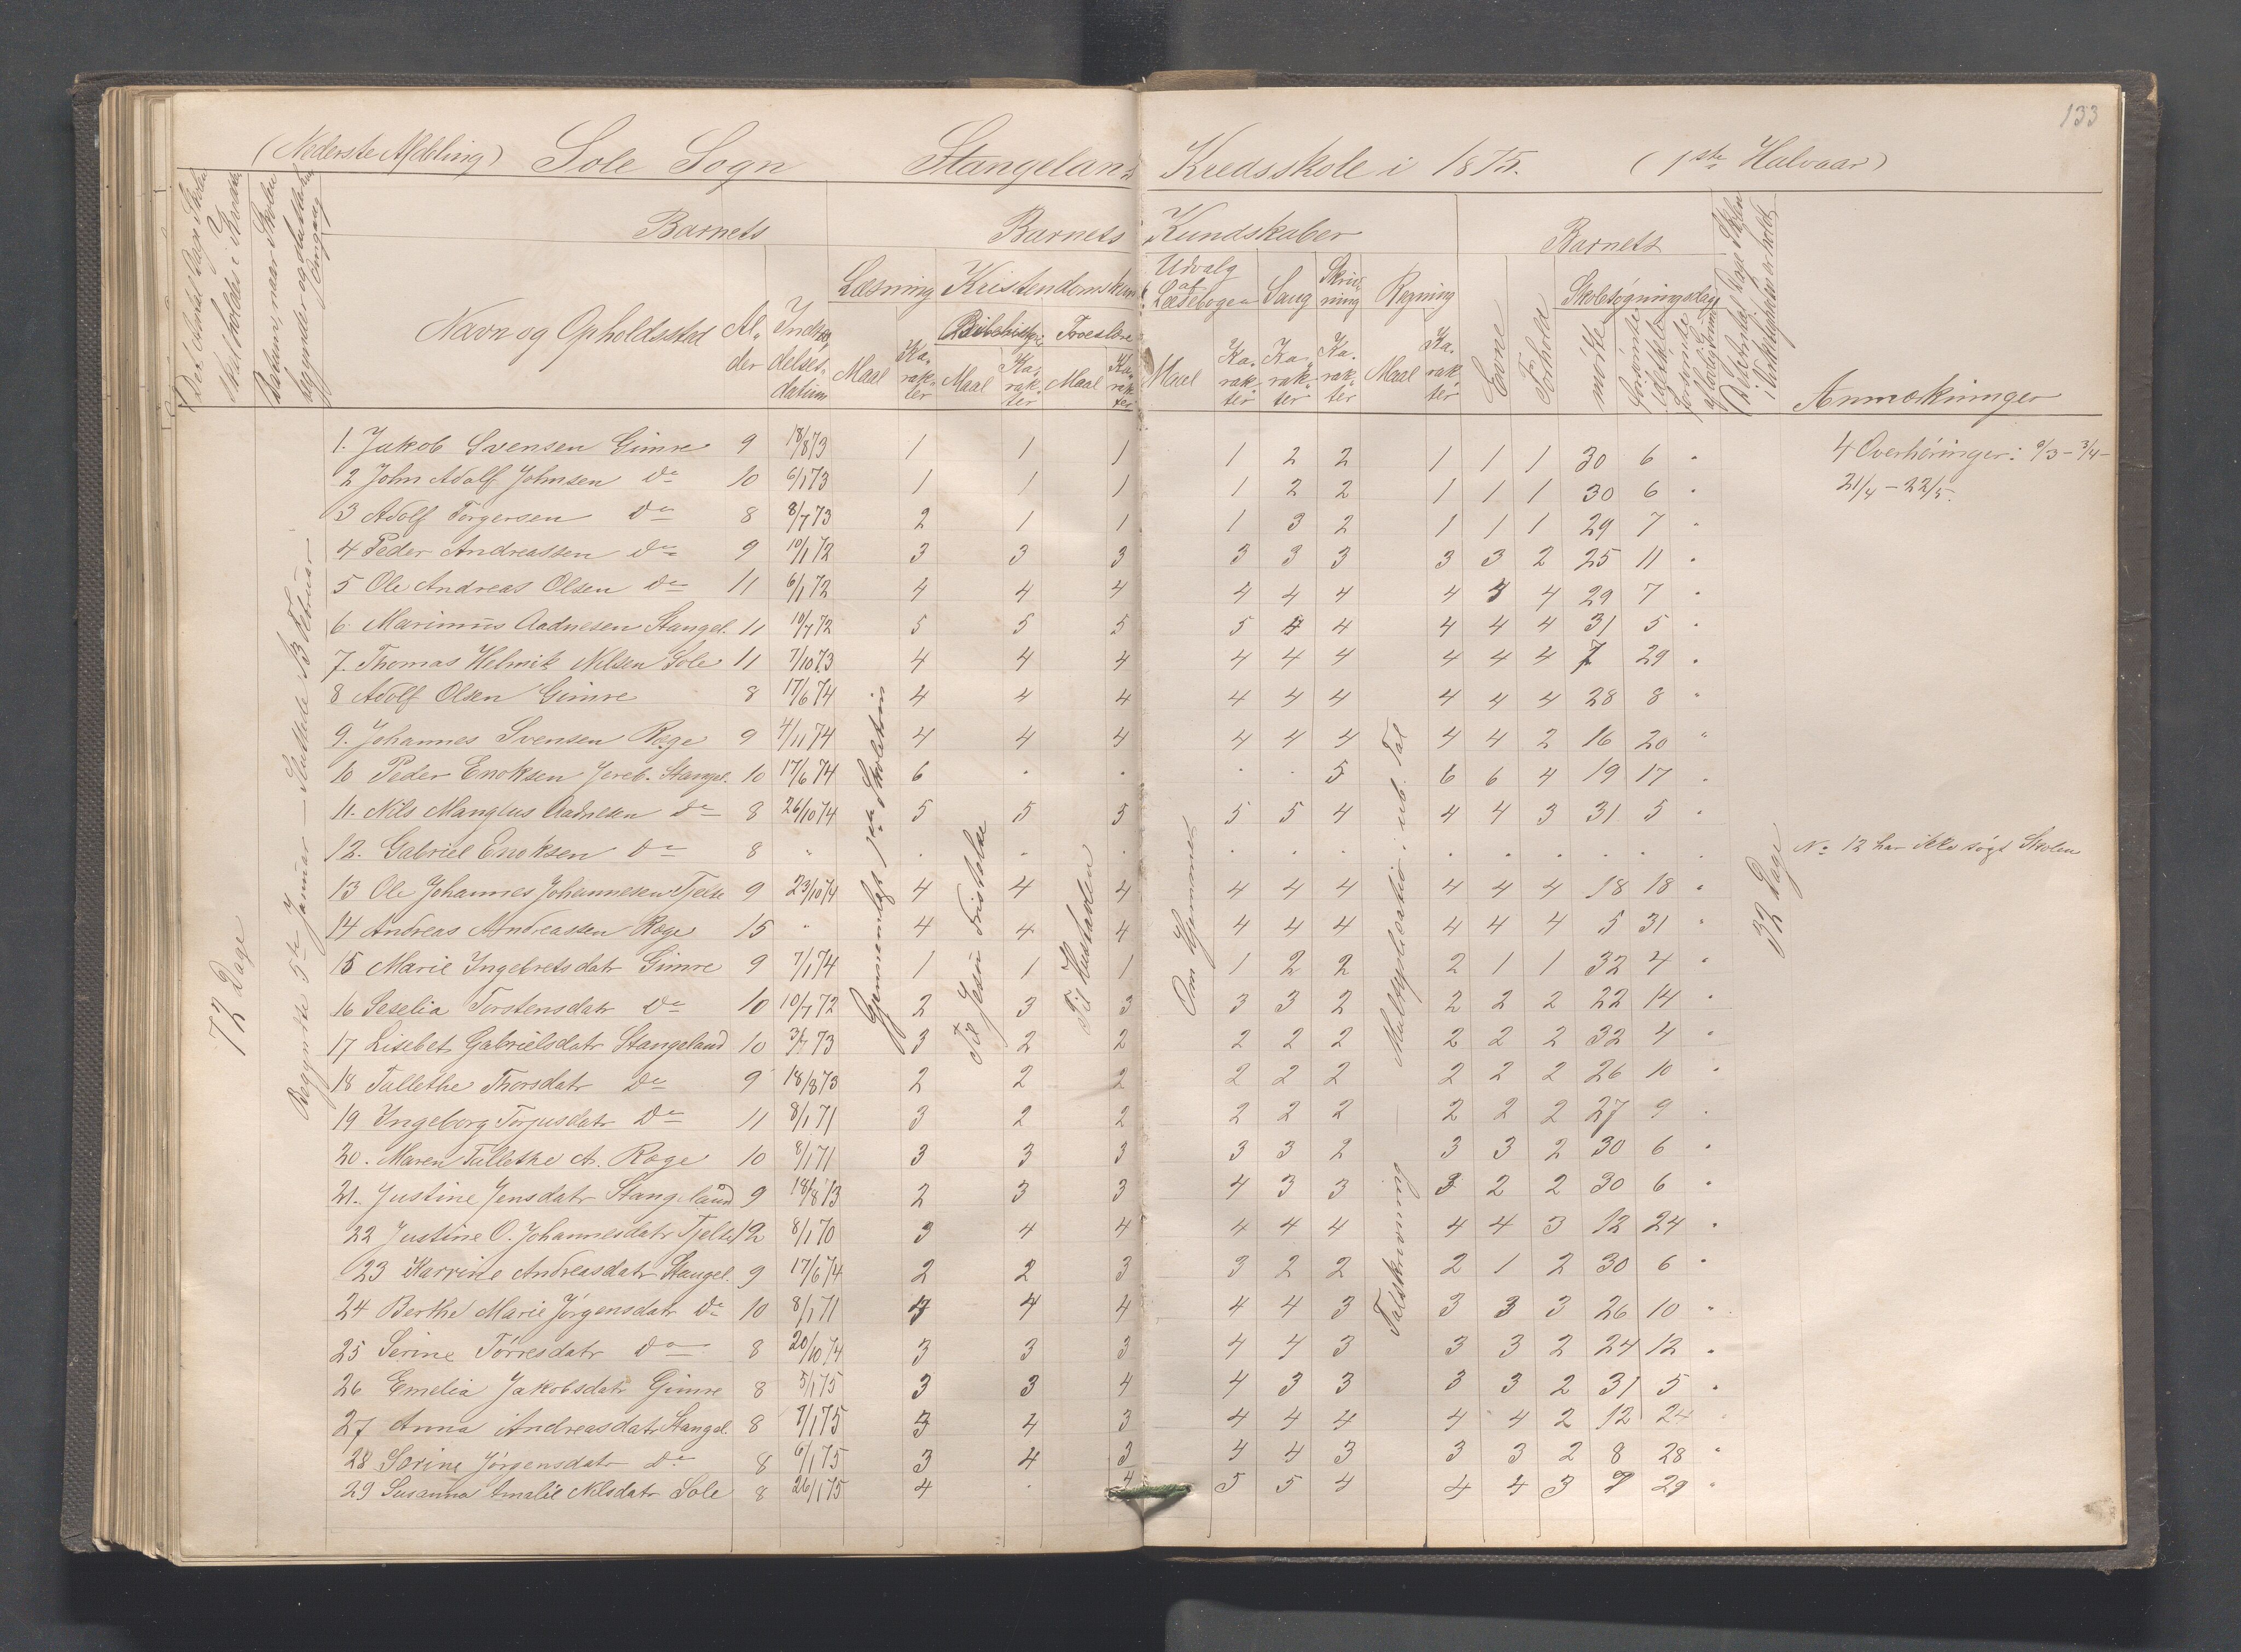 133
(Nederste Afdeling) Sole Sogn Stangeland Kredsskole i 1875. (1ste Halvaar)
Barnets Barnets Kundskaber Barnets
Læsning Kristendomskun Udvalg af Læsebogen Sang Skrivning Regning Skolesøgningsdage
Navn og Opholdssted Alder Indtrædelsesdatum Maal Karakter Bibelhistorie Maal Karakter Troeslære Maal Karakter Maal Karakter Karakter Karakter Maal Karakter Evne Forhold mødte forsømte Anmærkninger
Det Antal Dage Skolen skal holdes i Kredsen
Datum, naar Skolen begynder og slutter hver Omgang
72 Dage
Begyndte 5te Januar — Sluttede 13 Februar
Gjennemlagt 1ste Skoletrin
Til Jesu Fristelse
Til Hustavlen
Om Hjemmet
Talskrivning — Multiplication i ub. Tal
32 Dage
1. Jakob Svensen Gimre 9 18/8 73 1 1 1 1 2 2 1 1 1 30 6 "
2 John Adolf Johnsen do 10 6/1 73 1 1 1 1 2 2 1 1 1 30 6 "
3 Adolf Torgersen do 8 8/7 73 2 1 1 1 3 2 1 1 1 29 7 "
4 Peder Andreassen do 9 10/1 72 3 3 3 3 3 3 3 3 2 25 11 "
5 Ole Andreas Olsen do 11 6/1 72 4 4 4 4 4 4 4 3 4 29 7 "
6. Marinus Aadnesen Stangel. 11 10/7 72 5 5 5 5 4 4 4 4 4 31 5 "
7. Thomas Helmik Nilsen Sole 11 7/10 73 4 4 4 4 4 4 4 4 4 7 29 "
8 Adolf Olsen Gimre 8 17/6 74 4 4 4 4 4 4 4 4 4 28 8 "
9. Johannes Svensen Røge 9 4/11 74 4 4 4 4 4 4 4 4 2 16 20 "
10 Peder Enoksen Jereb. Stangel. 10 17/6 74 6 . . . . 5 6 6 4 19 17 "
11. Nils Manglus Aadnesen do 8 26/10 74 5 5 5 5 5 4 4 4 3 31 5 "
12. Gabriel Enoksen do 8 " . . . . . . . . . . . .
13 Ole Johannes Johannesen Tjelse 9 23/10 74 4 4 4 4 4 4 4 4 4 18 18 "
14 Andreas Andreassen Røge 15 " 4 4 4 4 4 4 4 4 4 5 31 "
15 Marie Ingebretsdatr Gimre 9 7/1 74 1 1 1 1 2 2 2 1 1 32 4 "
16 Seselia Torstensdatr do 10 10/7 72 2 3 3 3 3 2 2 2 2 22 14 "
17 Lisebet Gabrielsdatr Stangeland 10 3/7 73 3 2 2 2 2 2 2 2 2 32 4 "
18 Tallethe Thorsdatr do 9 18/8 73 2 2 2 2 2 2 2 2 2 26 10 "
19 Ingeborg Torjusdatr do 11 8/1 71 3 2 2 2 2 2 2 2 2 27 9 .
20. Maren Tallethe A. Røge 10 8/1 71 3 3 3 3 3 2 3 3 2 30 6 "
21. Justine Jensdatr Stangeland 9 18/8 73 2 3 3 4 3 3 3 2 2 30 6 "
22 Justine O. Johannesdatr Tjelse 12 8/1 70 3 4 4 4 4 4 4 4 3 12 24 "
23 Karrine Andreasdatr Stangel. 9 17/6 74 2 2 3 3 2 2 2 1 2 30 6 "
24 Berthe Marie Jørgensdatr do 10 8/1 71 4 4 4 4 4 3 3 3 3 26 10 "
25 Serine Tørresdatr do 8 20/10 74 3 3 3 4 4 3 3 3 2 24 12 "
26 Emelia Jakobsdatr Gimre 8 5/1 75 3 3 4 4 3 3 3 3 2 31 5 "
27 Anna Andreasdatr Stangel. 8 7/1 75 3 4 3 4 4 4 4 4 2 12 24 "
28 Serine Jørgensdatr do 8 6/1 75 3 4 3 4 4 3 3 3 2 8 28 "
29 Susanna Amalie Nilsdatr Sole 8 26/1 75 4 . 4 5 5 4 4 4 3 7 29 "
4 Overhøringer: 9/3 - 3/4 -
21/4 - 22/5.
No 12 har ikke søgt Skolen